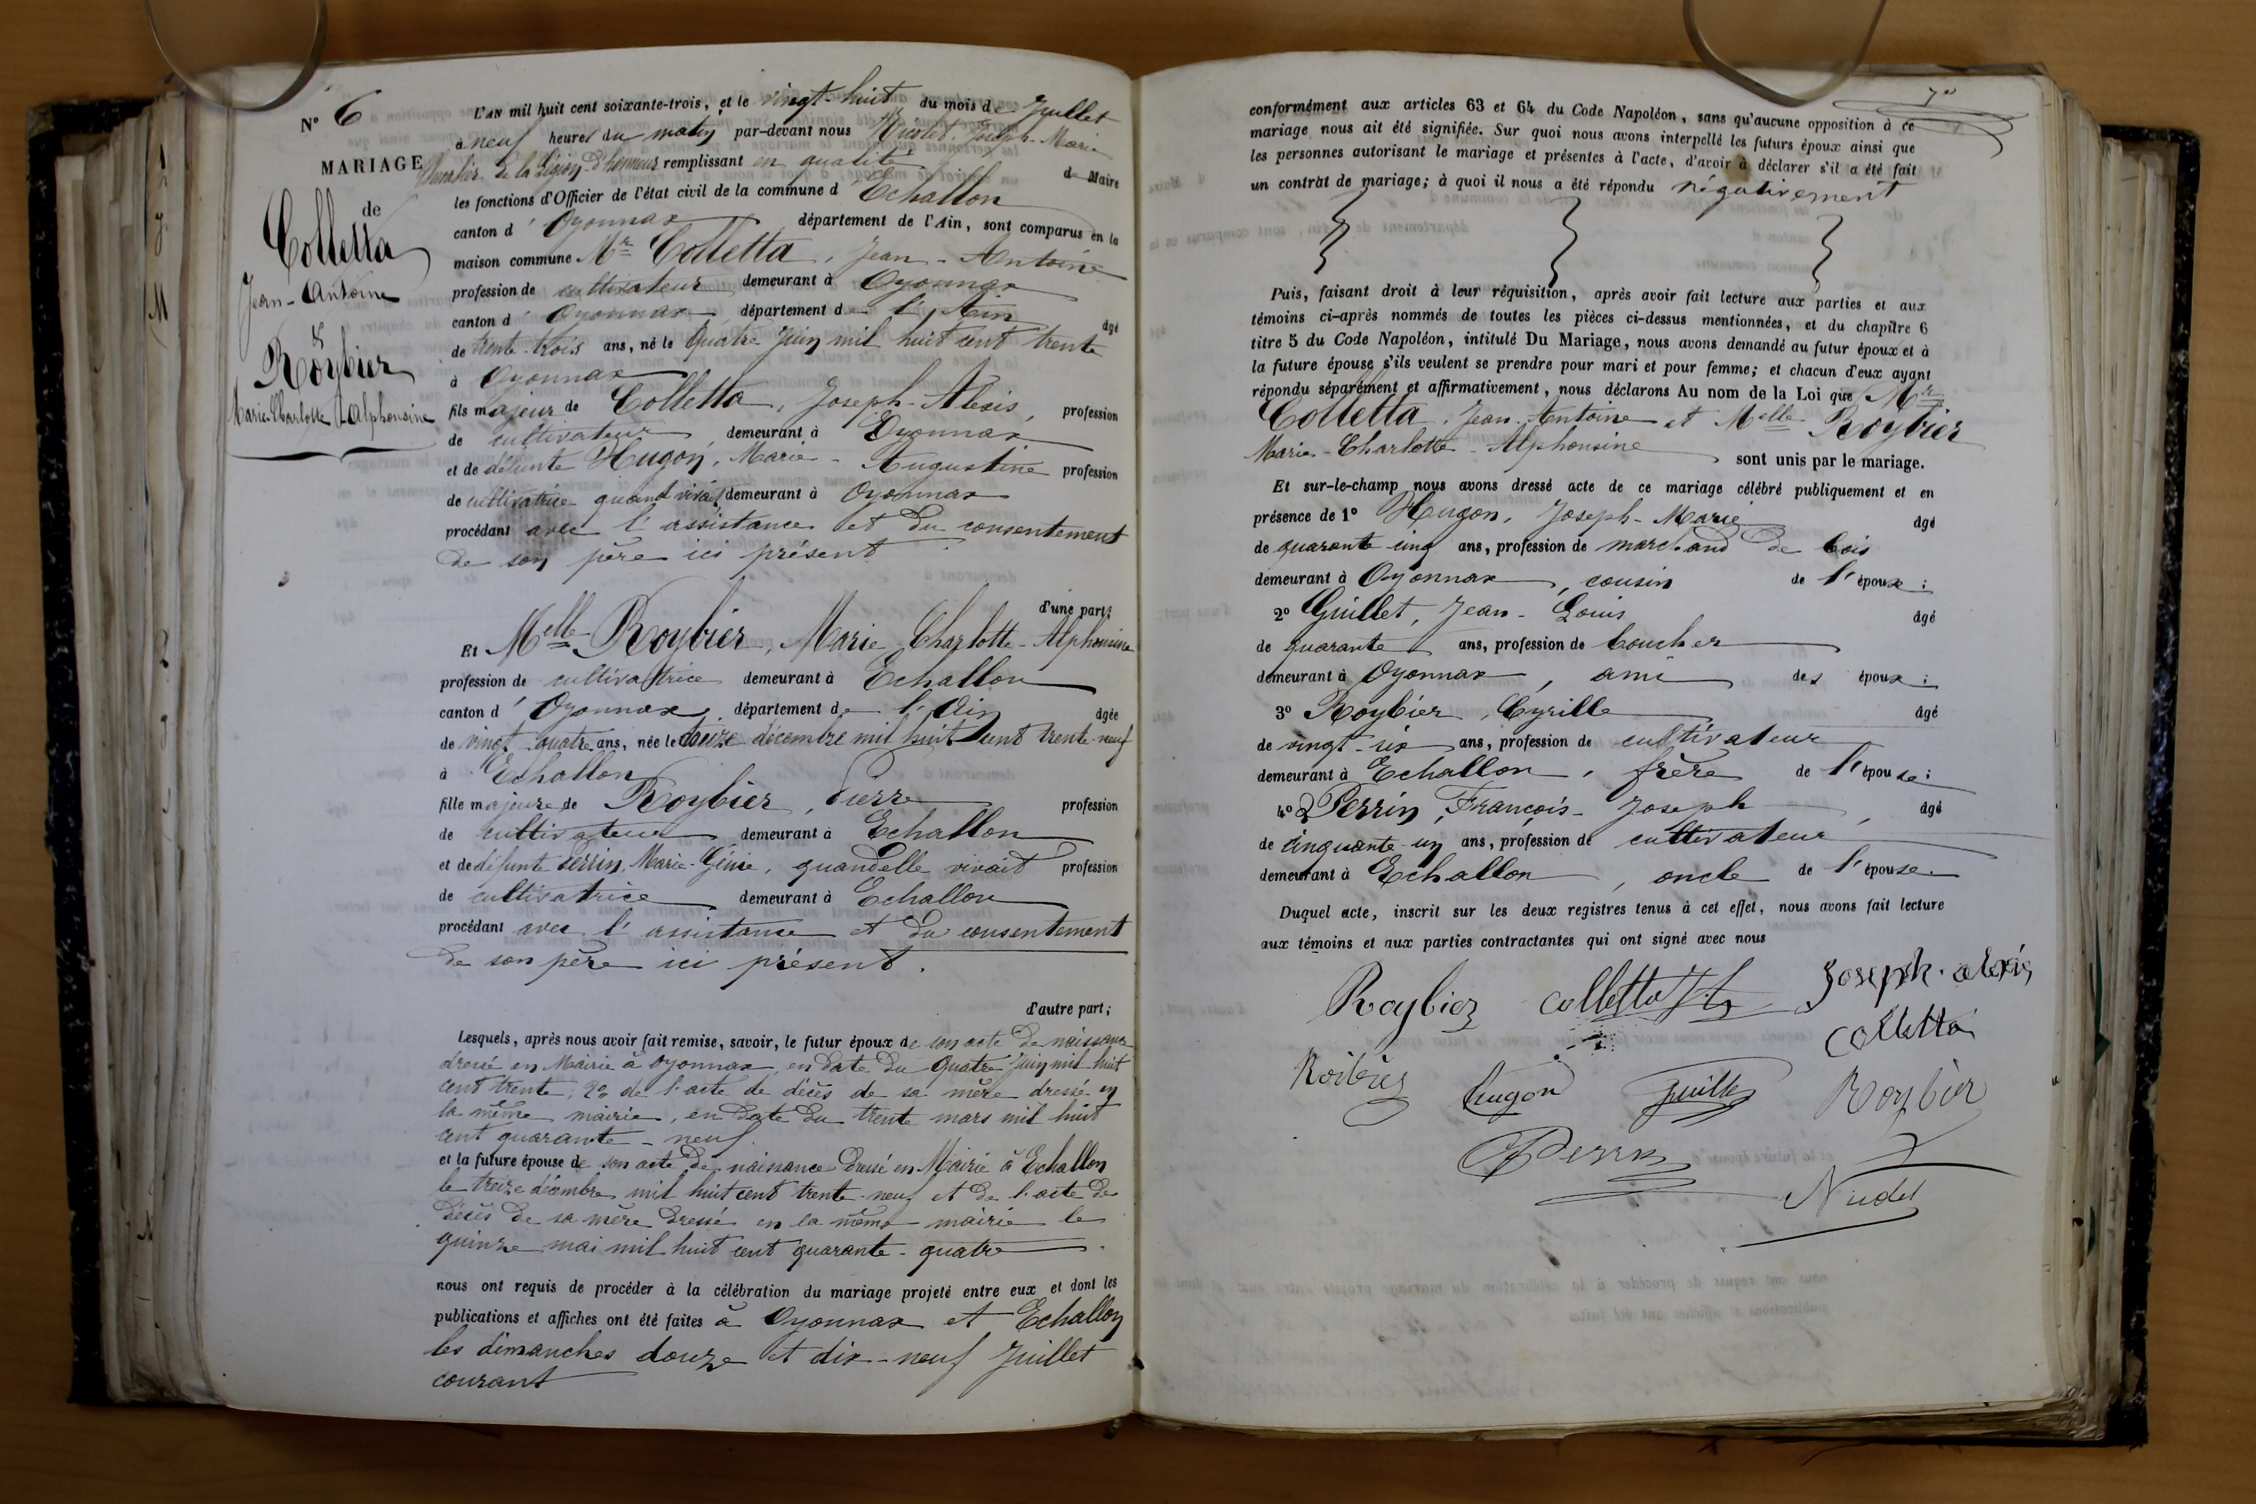 N° 6
MARIAGE
de
Colletta
Jean-Antoine
&
Roybier
Marie-Charlotte-Alphonsine
L'AN mil huit cent soixante-trois, et le vingt-huit du mois de Juillet
à neuf heures du matin par-devant nous Joseph-Marie
Chevalier de la Légion d'honneur remplissant en qualité de Maire
les fonctions d'Officier de l'état civil de la commune d'Echallon
canton d'Oyonnax département de l'Ain, sont comparus en la
maison commune Mr Colletta, Jean-Antoine
profession de cultivateur demeurant à Oyonnax
canton d'Oyonnax département de l'Ain âgé
de trente-trois ans, né le quatre Juin mil huit cent trente
à Oyonnax
fils majeur de Colletta, Joseph-Alexis, profession
de cultivateur demeurant à Oyonnax
et de défunte Hugon, Marie-Augustine profession
de cultivatrice quand vivait demeurant à Oyonnax
procédant avec l'assistance et du consentement
de son père ici présent
d'une part;
Et Melle Roybier, Marie Charlotte-Alphonsine
profession de cultivatrice demeurant à Echallon
canton d'Oyonnax département de l'Ain âgée
de vingt-quatre ans, née le treize décembre mil huit cent trente-neuf
à Echallon
fille majeure de Roybier, Pierre profession
de cultivateur demeurant à Echallon
et de défunte Perrin, Marie-Génie, quand elle vivait profession
de cultivatrice demeurant à Echallon
procédant avec l'assistance et du consentement
de son père ici présent.
d'autre part;
Lesquels, après nous avoir fait remise, savoir, le futur époux de son acte de naissance
dressé en Mairie à Oyonnax, en date du quatre Juin mil huit
cent trente; 2° de l'acte de décès de sa mère dressé en
la même mairie, en date du trente mars mil huit
cent quarante-neuf
et la future épouse de son acte de naissance dressé en Mairie à Echallon
le treize décembre mil huit cent trente-neuf et de l'acte de
décès de sa mère dressé en la même mairie le
quinze mai mil huit cent quarante-quatre.
nous ont requis de procéder à la célébration du mariage projeté entre eux et dont les
publications et affiches ont été faites à Oyonnax et Echallon
les dimanches douze et dix-neuf Juillet
courant
conformément aux articles 63 et 64 du Code Napoléon, sans qu'aucune opposition à ce
mariage nous ait été signifiée. Sur quoi nous avons interpellé les futurs époux ainsi que
les personnes autorisant le mariage et présentes à l'acte, d'avoir à déclarer s'il a été fait
un contrat de mariage; à quoi il nous a été répondu négativement
Puis, faisant droit à leur réquisition, après avoir fait lecture aux parties et aux
témoins ci-après nommés de toutes les pièces ci-dessus mentionnées, et du chapître 6
titre 5 du Code Napoléon, intitulé Du Mariage, nous avons demandé au futur époux et à
la future épouse s'ils veulent se prendre pour mari et pour femme; et chacun d'eux ayant
répondu séparément et affirmativement, nous déclarons Au nom de la Loi que Mr
Colletta, Jean-Antoine et Melle Roybier
Marie-Charlotte-Alphonsine sont unis par le mariage.
Et sur-le-champ nous avons dressé acte de ce mariage célébré publiquement et en
présence de 1° Hugon, Joseph-Marie âgé
de quarante-cinq ans, profession de marchand de bois
demeurant à Oyonnax, cousin de l'époux;
2° Guillet, Jean-Louis âgé
de quarante ans, profession de boucher
demeurant à Oyonnax, ami des époux;
3° Roybier, Cyrille âgé
de vingt-six ans, profession de cultivateur
demeurant à Echallon, frère de l'épouse;
4° Perrin, François-Joseph, âgé
de cinquante-un ans, profession de cultivateur
demeurant à Echallon, oncle de l'épouse.
Duquel acte, inscrit sur les deux registres tenus à cet effet, nous avons fait lecture
aux témoins et aux parties contractantes qui ont signé avec nous
Roybier Colletta Joseph-alexis
Colletta
Roibier hugon Guillet Roybier
Perrin